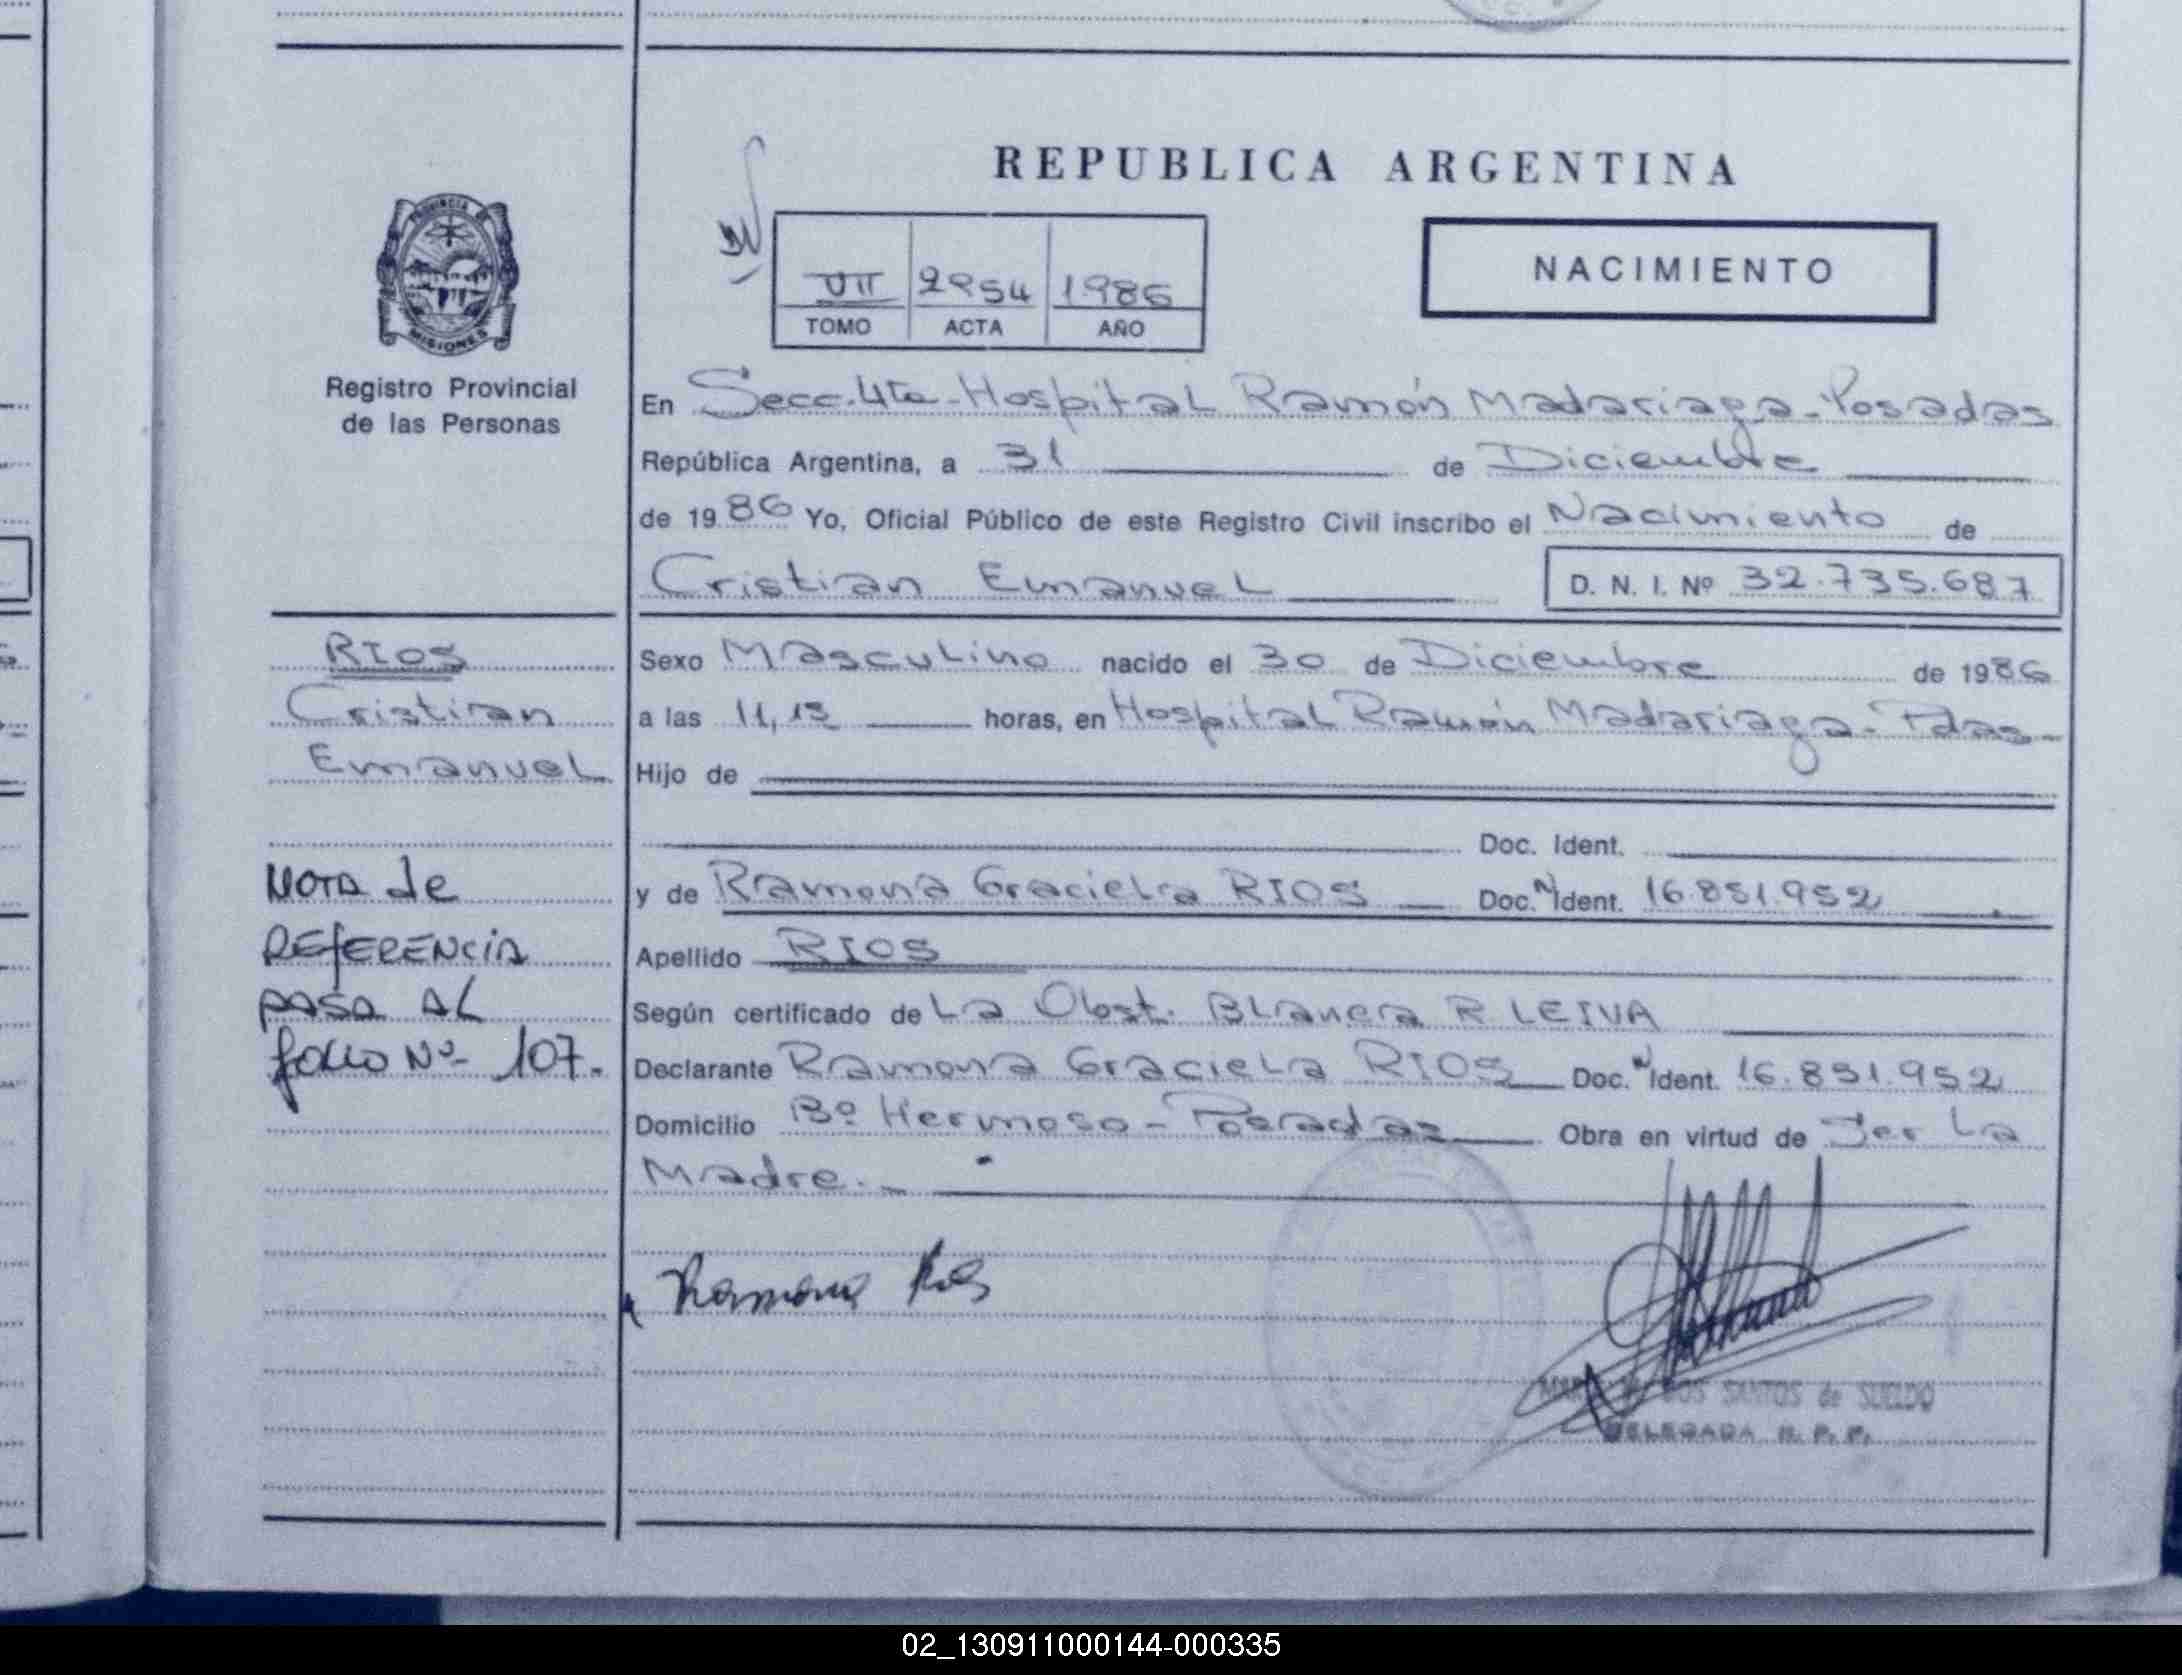 REPUBLICA ARGENTINA
NACIMIENTO
VII 2954 1986
TOMO ACTA AÑO
PROVINCIA DE
MISIONES
Registro Provincial
de las Personas
En Secc. 4ta - Hospital Ramón Madariaga - Posadas
República Argentina, a 31 de Diciembre
de 1986 Yo, Oficial Público de este Registro Civil inscribo el Nacimiento de
Cristian Emanuel D. N. I. Nº 32.735.687
RIOS
Cristian
Emanuel
Nota de
Referencia
pasa al
folio Nº 107.
Sexo Masculino nacido el 30 de Diciembre de 1986
a las 11,15 horas, en Hospital Ramón Madariaga - Pdas -
Hijo de
Doc. Ident.
y de Ramona Graciela RIOS Doc. N Ident. 16.851.952
Apellido RIOS
Según certificado de La Obst. Blanca R LEIVA
Declarante Ramona Graciela RIOS Doc. N Ident. 16.851.952
Domicilio Bº Hermoso - Posadas Obra en virtud de Ser La
Madre. -
Ramona Rios
DOS SANTOS de SUELDO
DELEGADA R. P. P.
02_130911000144-000335